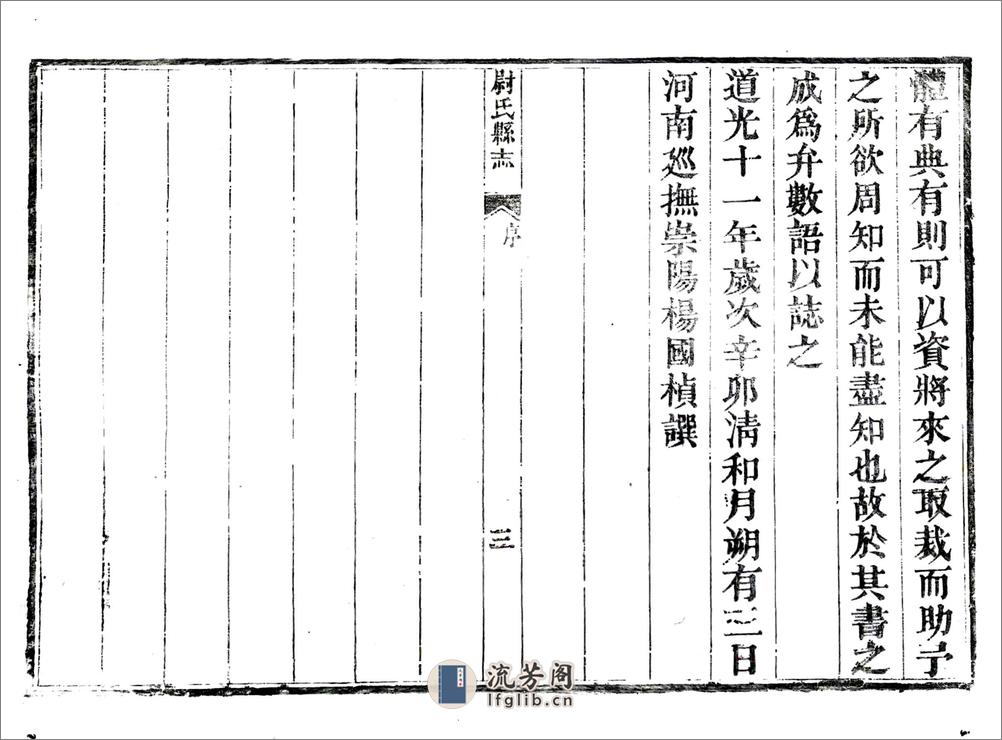 體有典有則可以資將來之取裁而助予
之所欲周知而未能盡知也故於其書之
成爲弁數語以誌之
道光十一年歲次辛卯淸和月朔有三日
河南廵撫崇陽楊國楨譔
尉氏縣志
序
三
流芳阁
lfglib.cn